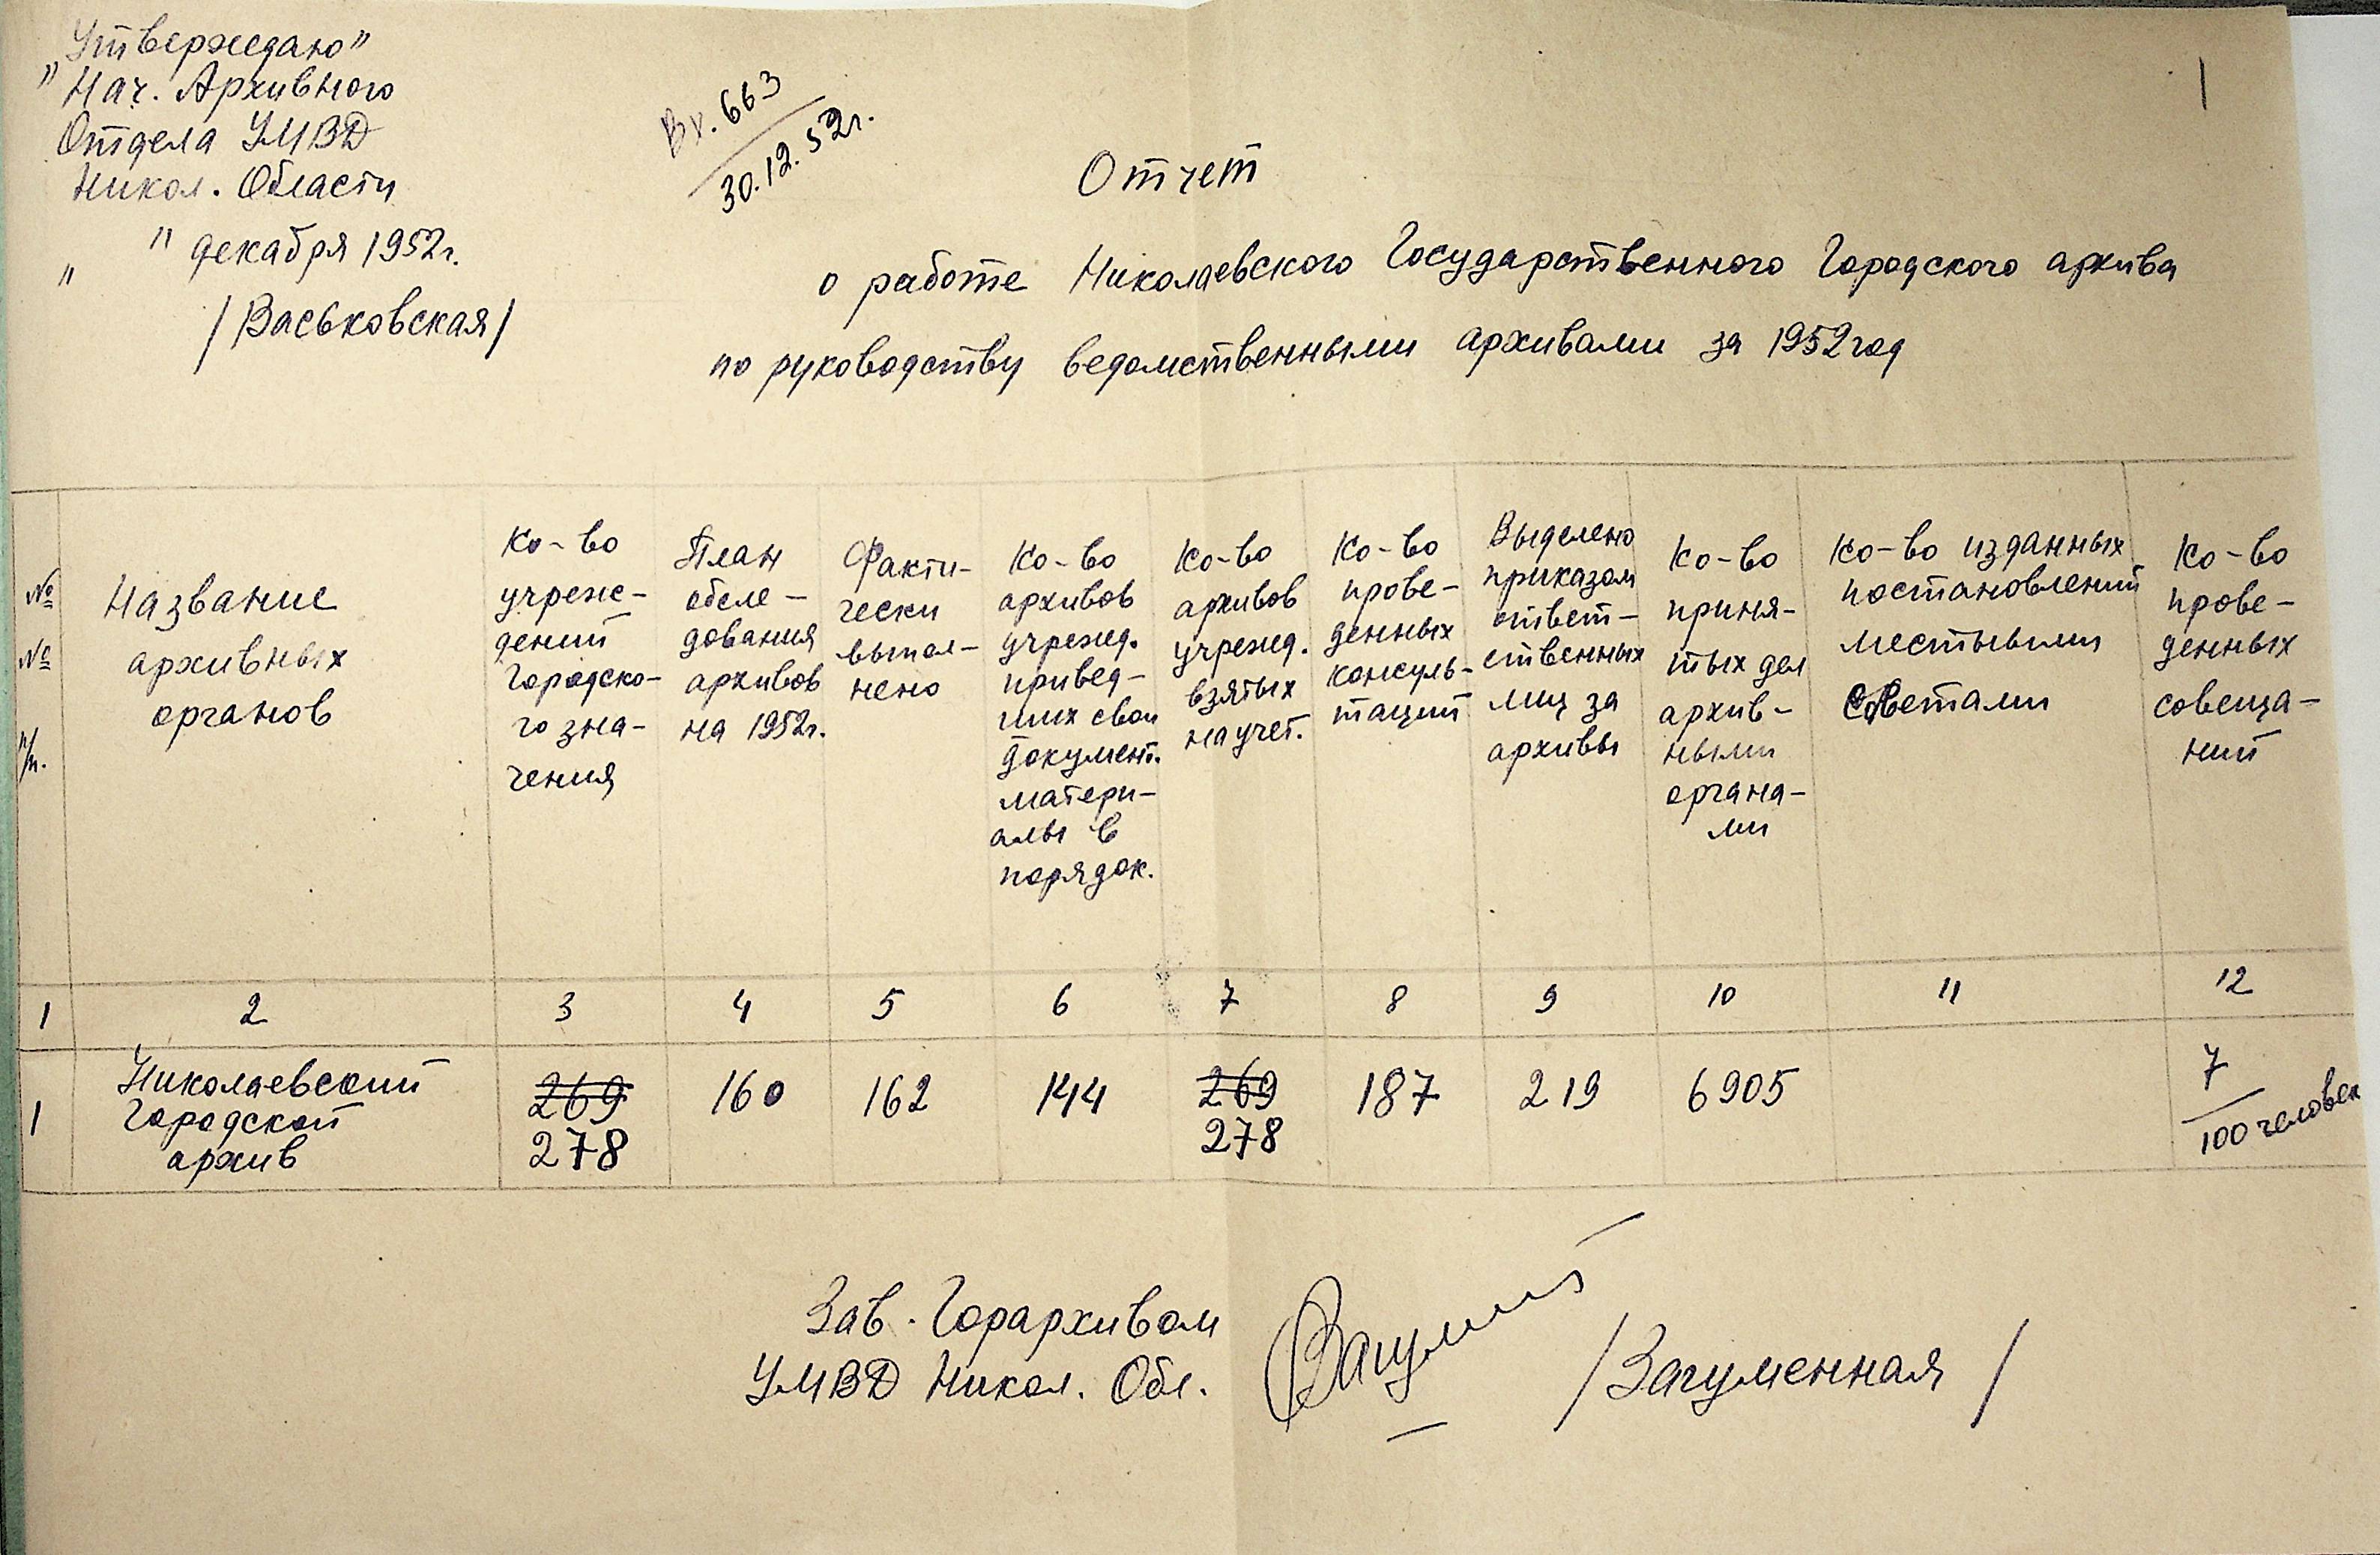 „Утверждаю"
"Нач. Архивного
Отдела УМВД
Никол. Области
" " декабря 1952г.
/Васьковская/
Вх. 663
30.12.52г.
1
Отчет
о работе Николаевского Государственного Городского архива
по руководству ведомственными архивами за 1952 год
№
№
п/п.
Название
архивных
органов
Ко-во
учреж-
дений
Городско-
го зна-
чения
План
обсле-
дования
архивов
на 1952г.
Факти-
чески
выпол-
нено
Ко-во
архивов
учрежд.
привед-
ших свои
документ.
матери-
алы в
порядок.
Ко-во
архивов
учрежд.
взятых
на учет.
Ко-во
прове-
денных
консуль-
таций
Выделено
приказом
ответ-
ственных
лиц за
архивы
Ко-во
приня-
тых дел
архив-
ными
органа-
ми
Ко-во изданных
постановлений
местными
Советами
Ко-во
прове-
денных
совеща-
ний
1 2 3 4 5 6 7 8 9 10 11 12
1
Николаевский
Городской
архив
269
278
160
162
144
269
278
187
219
6905
7
100 человек
Зав. Горархивом
УМВД Никол. Обл.
/Загуменная/